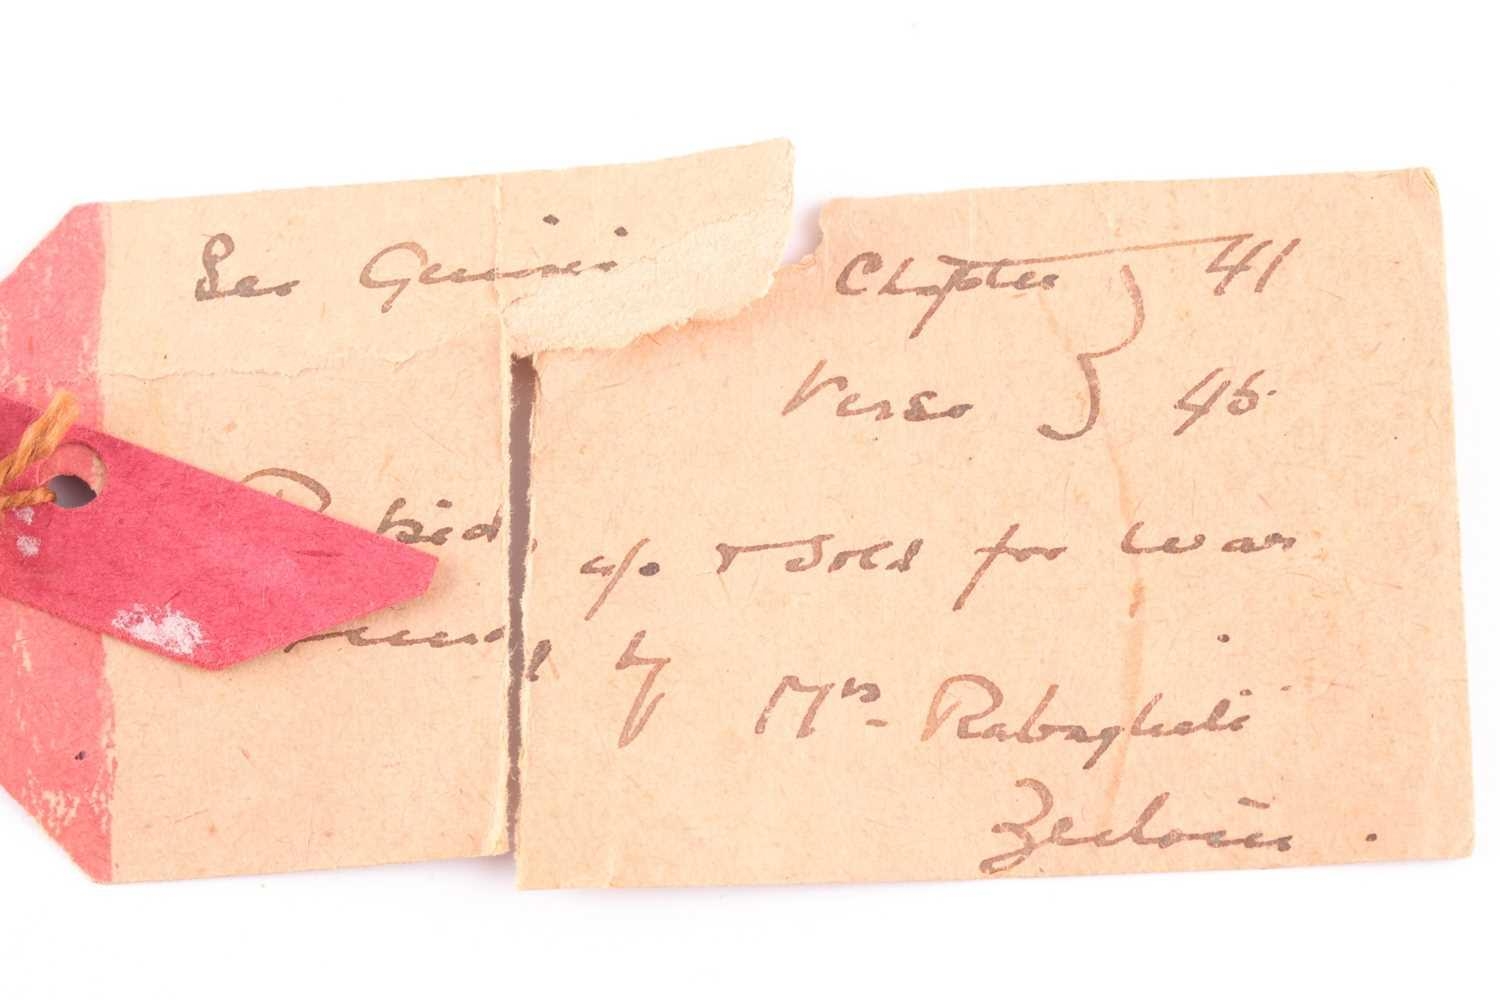 See Genisis Chapter } 41
Verse } 45.
Picked up & sold for War
by Mrs Rabagliati
Zeitoun.